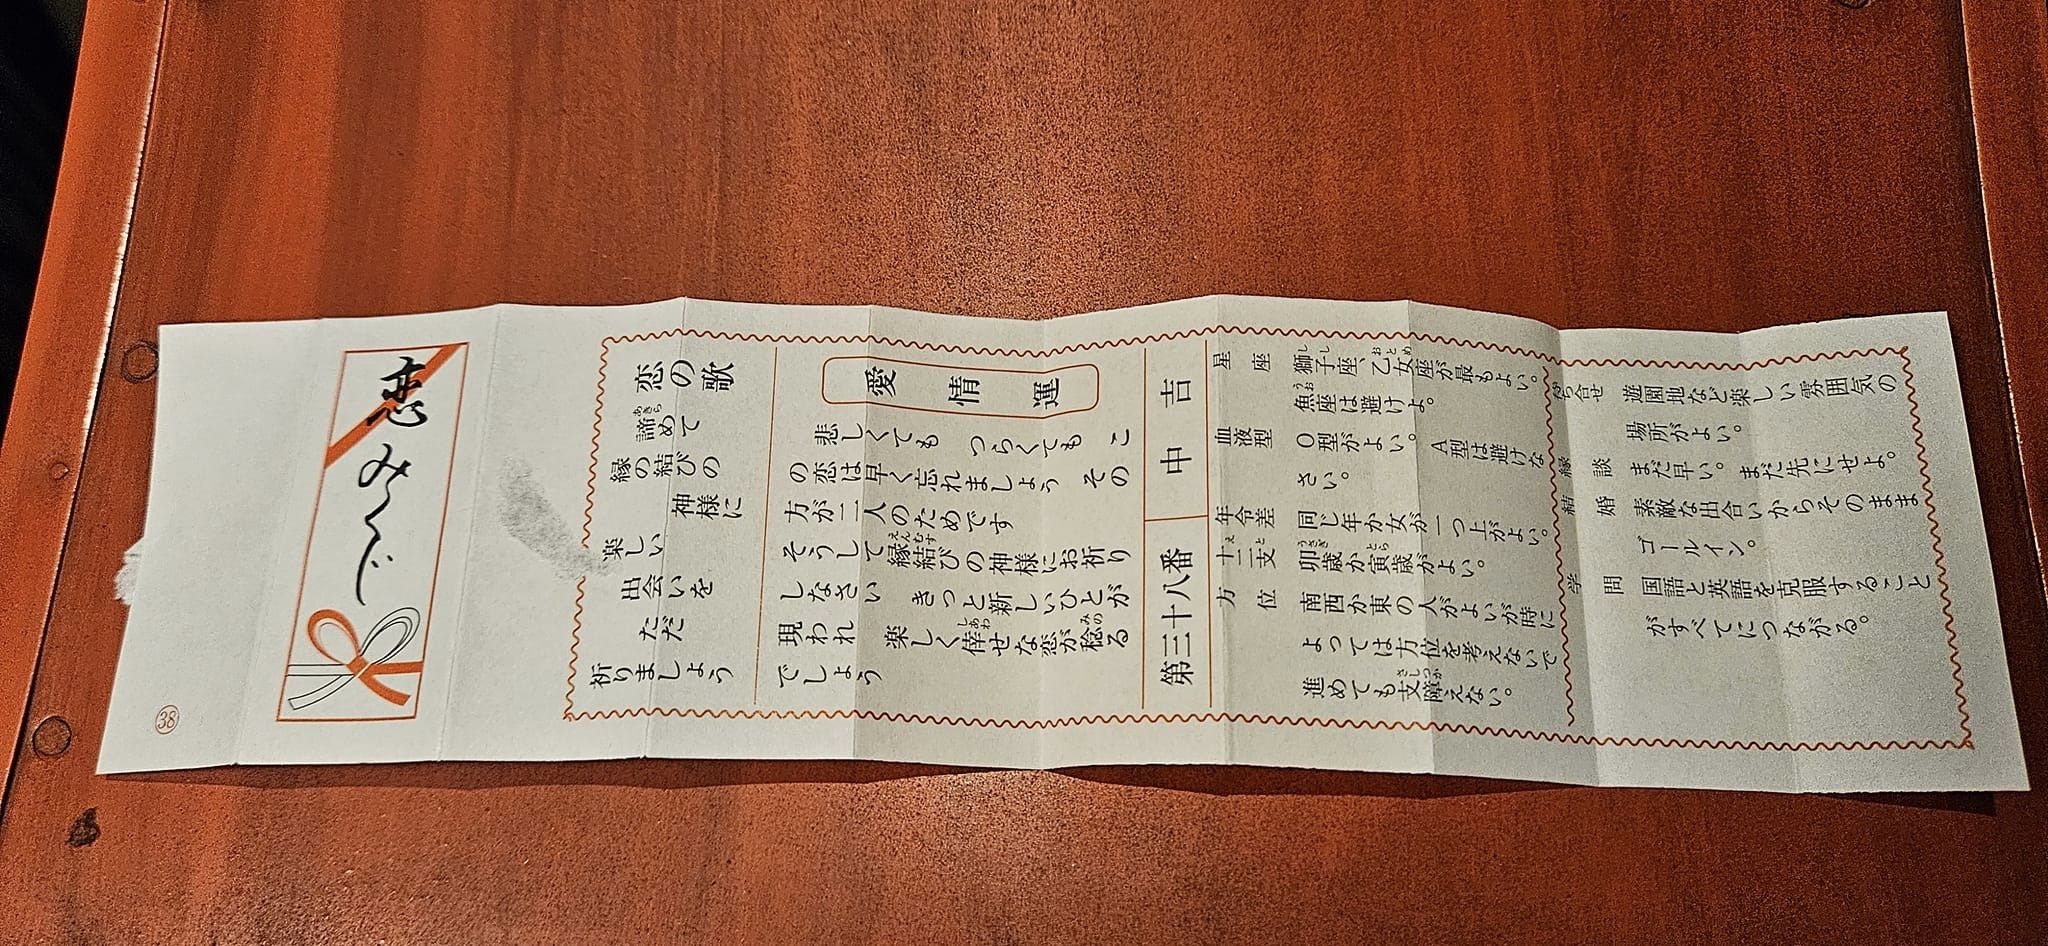 ㊳
恋みくじ
恋の歌
諦めて
縁の結びの
神様に
楽しい
出会いを
ただ
祈りましょう
愛情運
悲しくても つらくても こ
の恋は早く忘れましょう その
方が二人のためです
そうして縁結びの神様にお祈り
しなさい きっと新しいひとが
現われ 楽しく倖せな恋が稔る
でしょう
第三十八番 中吉
星座 獅子座、乙女座が最もよい。
魚座は避けよ。
血液型 O型がよい。A型は避けな
さい。
年令差 同じ年か女が一つ上がよい。
十二支 卯歳か寅歳がよい。
方位 南西か東の人がよいが時に
よっては方位を考えないで
進めても支障えない。
待ち合せ 遊園地など楽しい雰囲気の
場所がよい。
縁談 まだ早い。まだ先にせよ。
結婚 素敵な出合いからそのまま
ゴールイン。
学問 国語と英語を克服すること
がすべてにつながる。